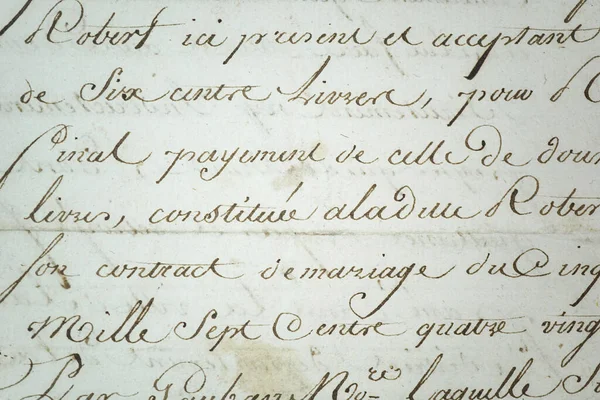 Robert ici present et acceptant
de Six centre Livrere, pour
final payement de celle de dou
livres, constituée a laditte Rober
son contract de mariage du Cinq
Mille Sept Centre quatre ving
Par Nore laquelle